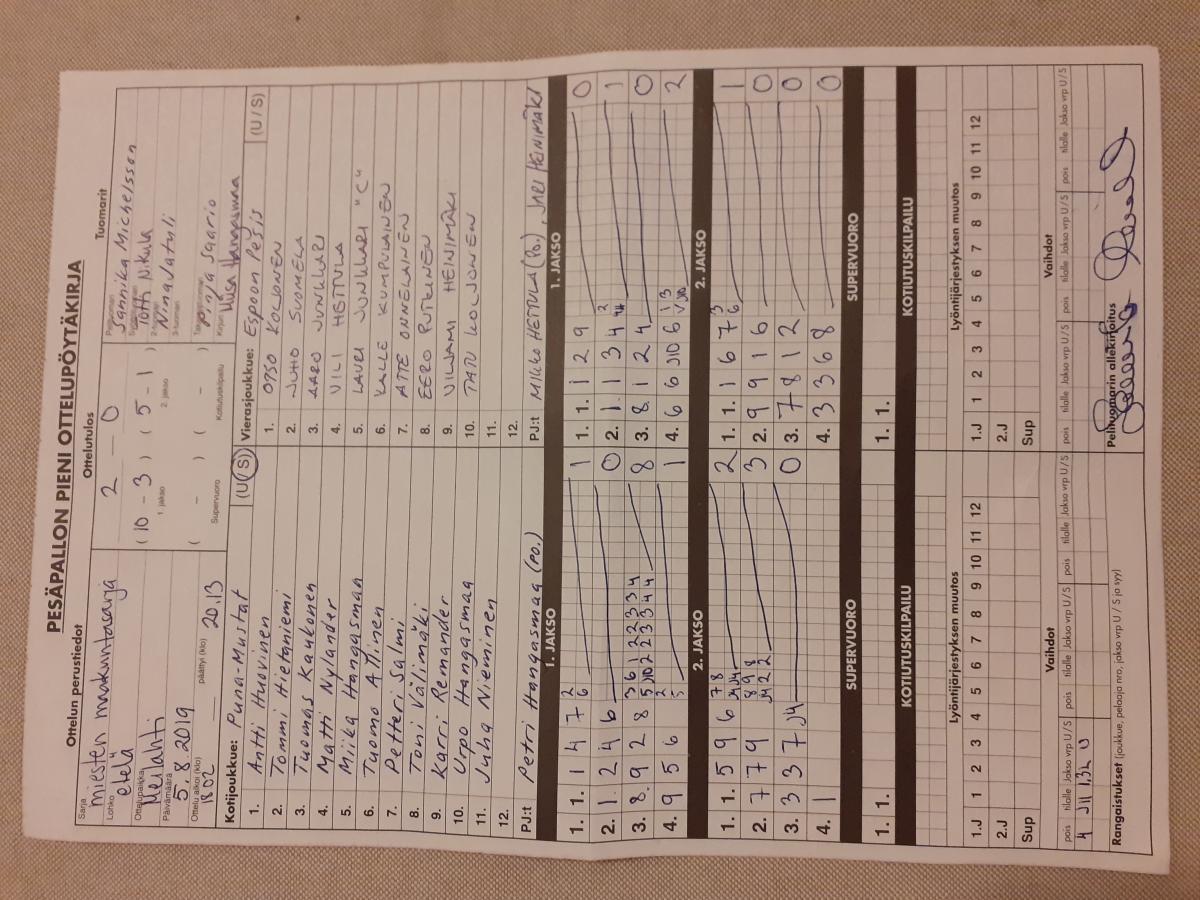 PESÄPALLON PIENI OTTELUPÖYTÄKIRJA
Ottelun perustiedot
Sarja
miesten maakuntasarja
Lohko
etelä
Ottelupaikka
Meilahti
Päivämäärä
5.8.2019
Ottelu alkoi (klo)
1802
päättyi (klo)
20.13
Ottelutulos
2 - 0
(10 - 3) (5 - 1)
1. jakso 2. jakso
( - ) ( - )
Supervuoro Kotiutuskilpailu
Tuomarit
Sannika Michelsson
2-tuomari
3-tuomari
Pinja Saario
Miisa Hangasmaa
Kotijoukkue: Puna-Mustat (U/S)
1. Antti Huovinen
2. Tommi Hietaniemi
3. Tuomas Kaukonen
4. Matti Nylander
5. Miika Hangasmaa
6. Tuomo Atinen
7. Petteri Salmi
8. Toni Välimäki
9. Karri Remander
10. Urpo Hangasmaa
11. Juha Nieminen
12.
PJ:t Petri Hangasmaa (PO.)
Vierasjoukkue: Espoon Pesis (U/S)
1. OTSO KOLJONEN
2. JUHO SUOMELA
3. AARO JUNKKARI
4. VILI HETTULA
5. LAURI JUNKKARI "C"
6. KALLE KUMPULAINEN
7. ATTE ONNELAINEN
8. EERO RUTEINEN
9. VILJAMI HEINIMÄKI
10. TATU KOLJONEN
11.
12.
PJ:t MIKKO HETTULA (PO.), JURI HEINIMÄKI
1. JAKSO
1. 1. 1 4 7 2 6 1
2. 1. 2 4 6 0
3. 8. 9 2 8 8
4. 9 5 6 1
1. JAKSO
1. 1. 1 2 9 0
2. 1. 1 3 4 1
3. 8. 1 2 4 0
4. 6 6 J10 6 2
2. JAKSO
1. 1. 5 9 6 2
2. 7 7 9 3
3. 3 3 7 J4 0
4. 1
2. JAKSO
1. 1. 1 6 7 3 6 1
2. 9 9 1 6 0
3. 7 8 1 2 0
4. 3 3 6 8 0
SUPERVUORO
1. 1.
SUPERVUORO
1. 1.
KOTIUTUSKILPAILU
KOTIUTUSKILPAILU
Lyöntijärjestyksen muutos
1.J 1 2 3 4 5 6 7 8 9 10 11 12
2.J
Sup
Lyöntijärjestyksen muutos
1.J 1 2 3 4 5 6 7 8 9 10 11 12
2.J
Sup
Vaihdot
pois tilalle Jakso vrp U/S pois tilalle Jakso vrp U/S pois tilalle Jakso vrp U/S
4 J11 1,3L U
Vaihdot
pois tilalle Jakso vrp U/S pois tilalle Jakso vrp U/S pois tilalle Jakso vrp U/S
Rangaistukset (joukkue, pelaaja nro, jakso vrp U / S ja syy)
Pelituomarin allekirjoitus